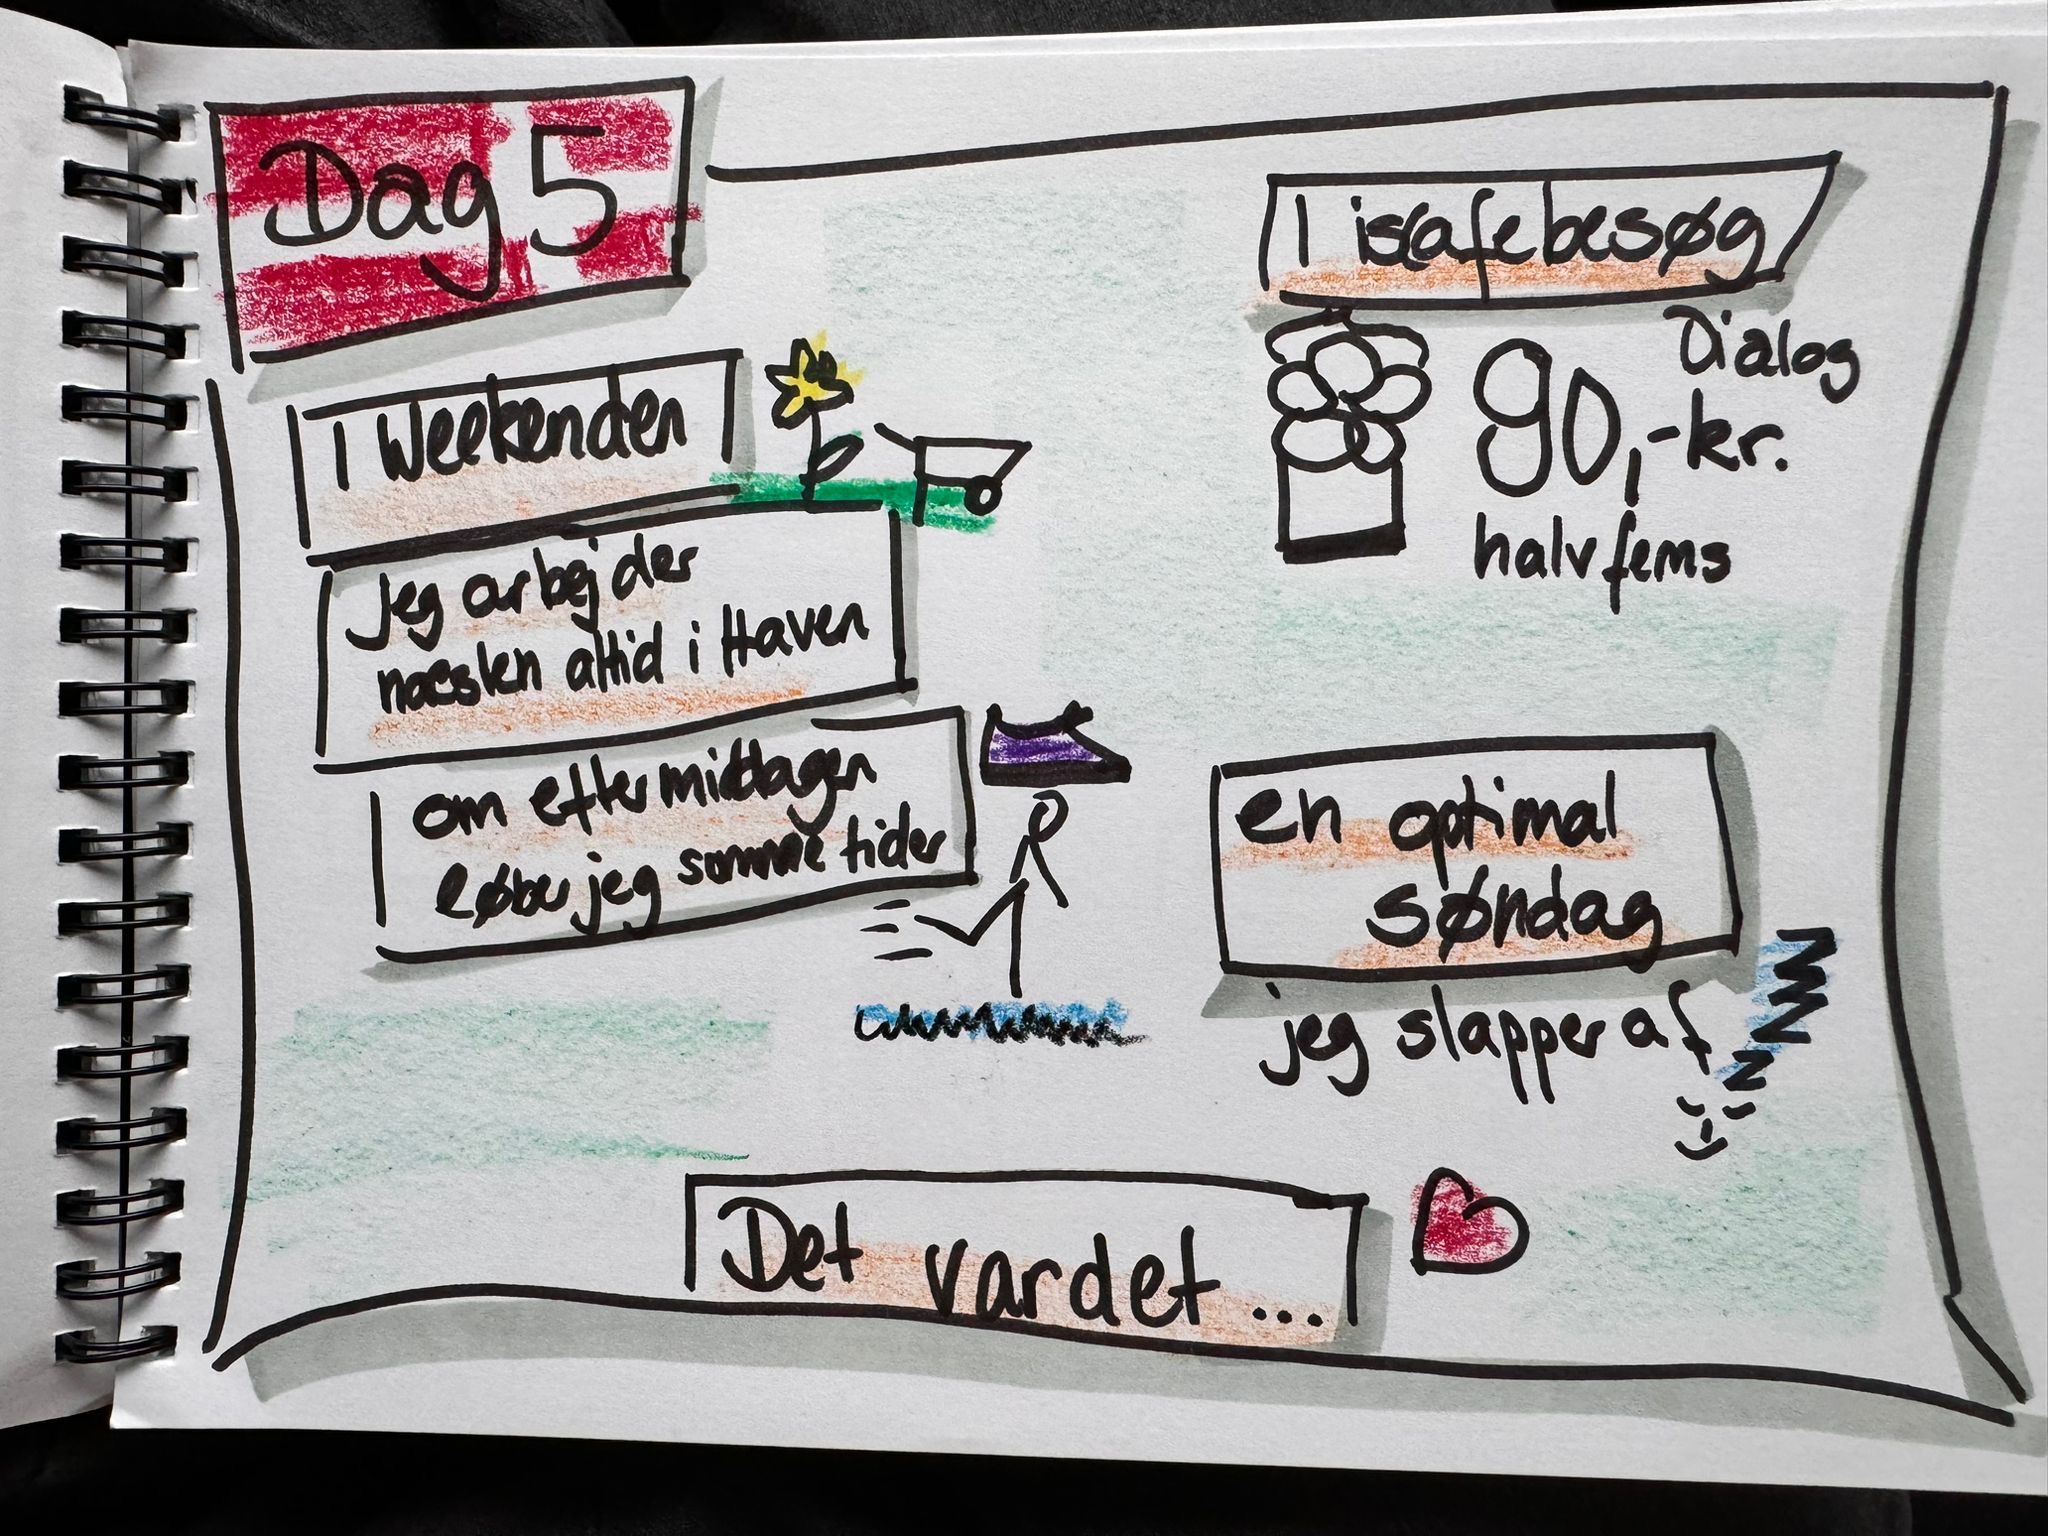 Dag 5
I Weekenden
jeg arbejder
næsten altid i Haven
om eftermiddagen
løber jeg somme tider
I iscafebesøg
Dialog
90,-kr.
halvfems
en optimal
søndag
jeg slapper af
Det var det ...